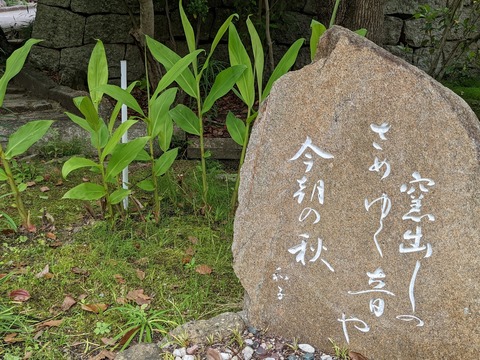 窯出しの
さめゆく音や
今朝の秋
和子